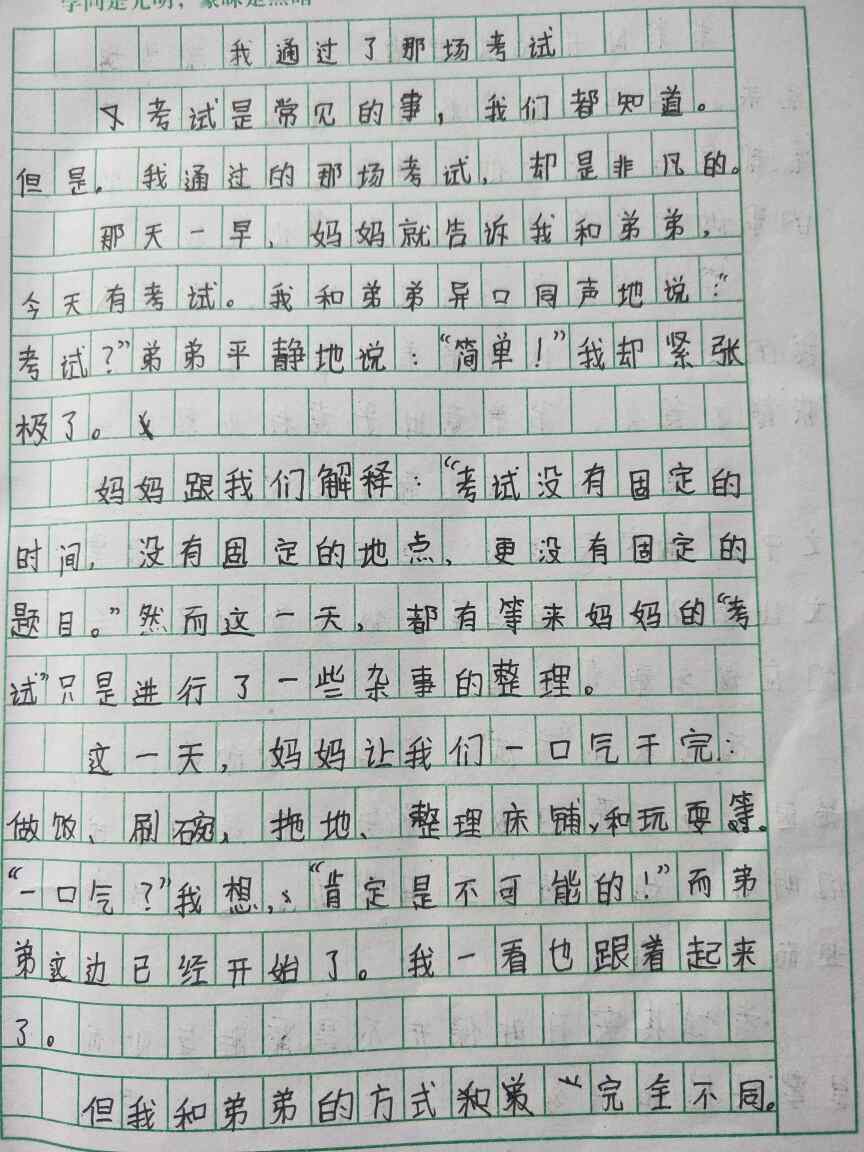 学问是光明，蒙昧是黑暗
我通过了那场考试
考试是常见的事，我们都知道。
但是。我通过的那场考试，却是非凡的。
那天一早，妈妈就告诉我和弟弟，
今天有考试。我和弟弟异口同声地说：“
考试？”弟弟平静地说：“简单！”我却紧张
极了。
妈妈跟我们解释：“考试没有固定的
时间，没有固定的地点、更没有固定的
题目。”然而这一天，都有等来妈妈的“考
试”只是进行了一些杂事的整理。
这一天，妈妈让我们一口气干完：
做饭、刷碗，拖地、整理床铺、和玩耍等。
“一口气？”我想，“肯定是不可能的！”而弟
弟这边已经开始了。我一看也跟着起来
了。
但我和弟弟的方式完全不同。